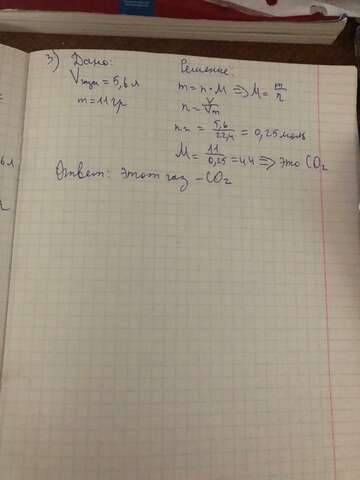 3) Дано:
Vгаза = 5,6 л
m = 11 гр
Решение:
m = n · M ⇒ M = m/n
n = V/Vm
n = 5,6/22,4 = 0,25 моль
M = 11/0,25 = 44 ⇒ это CO2
Ответ: Этот газ – CO2